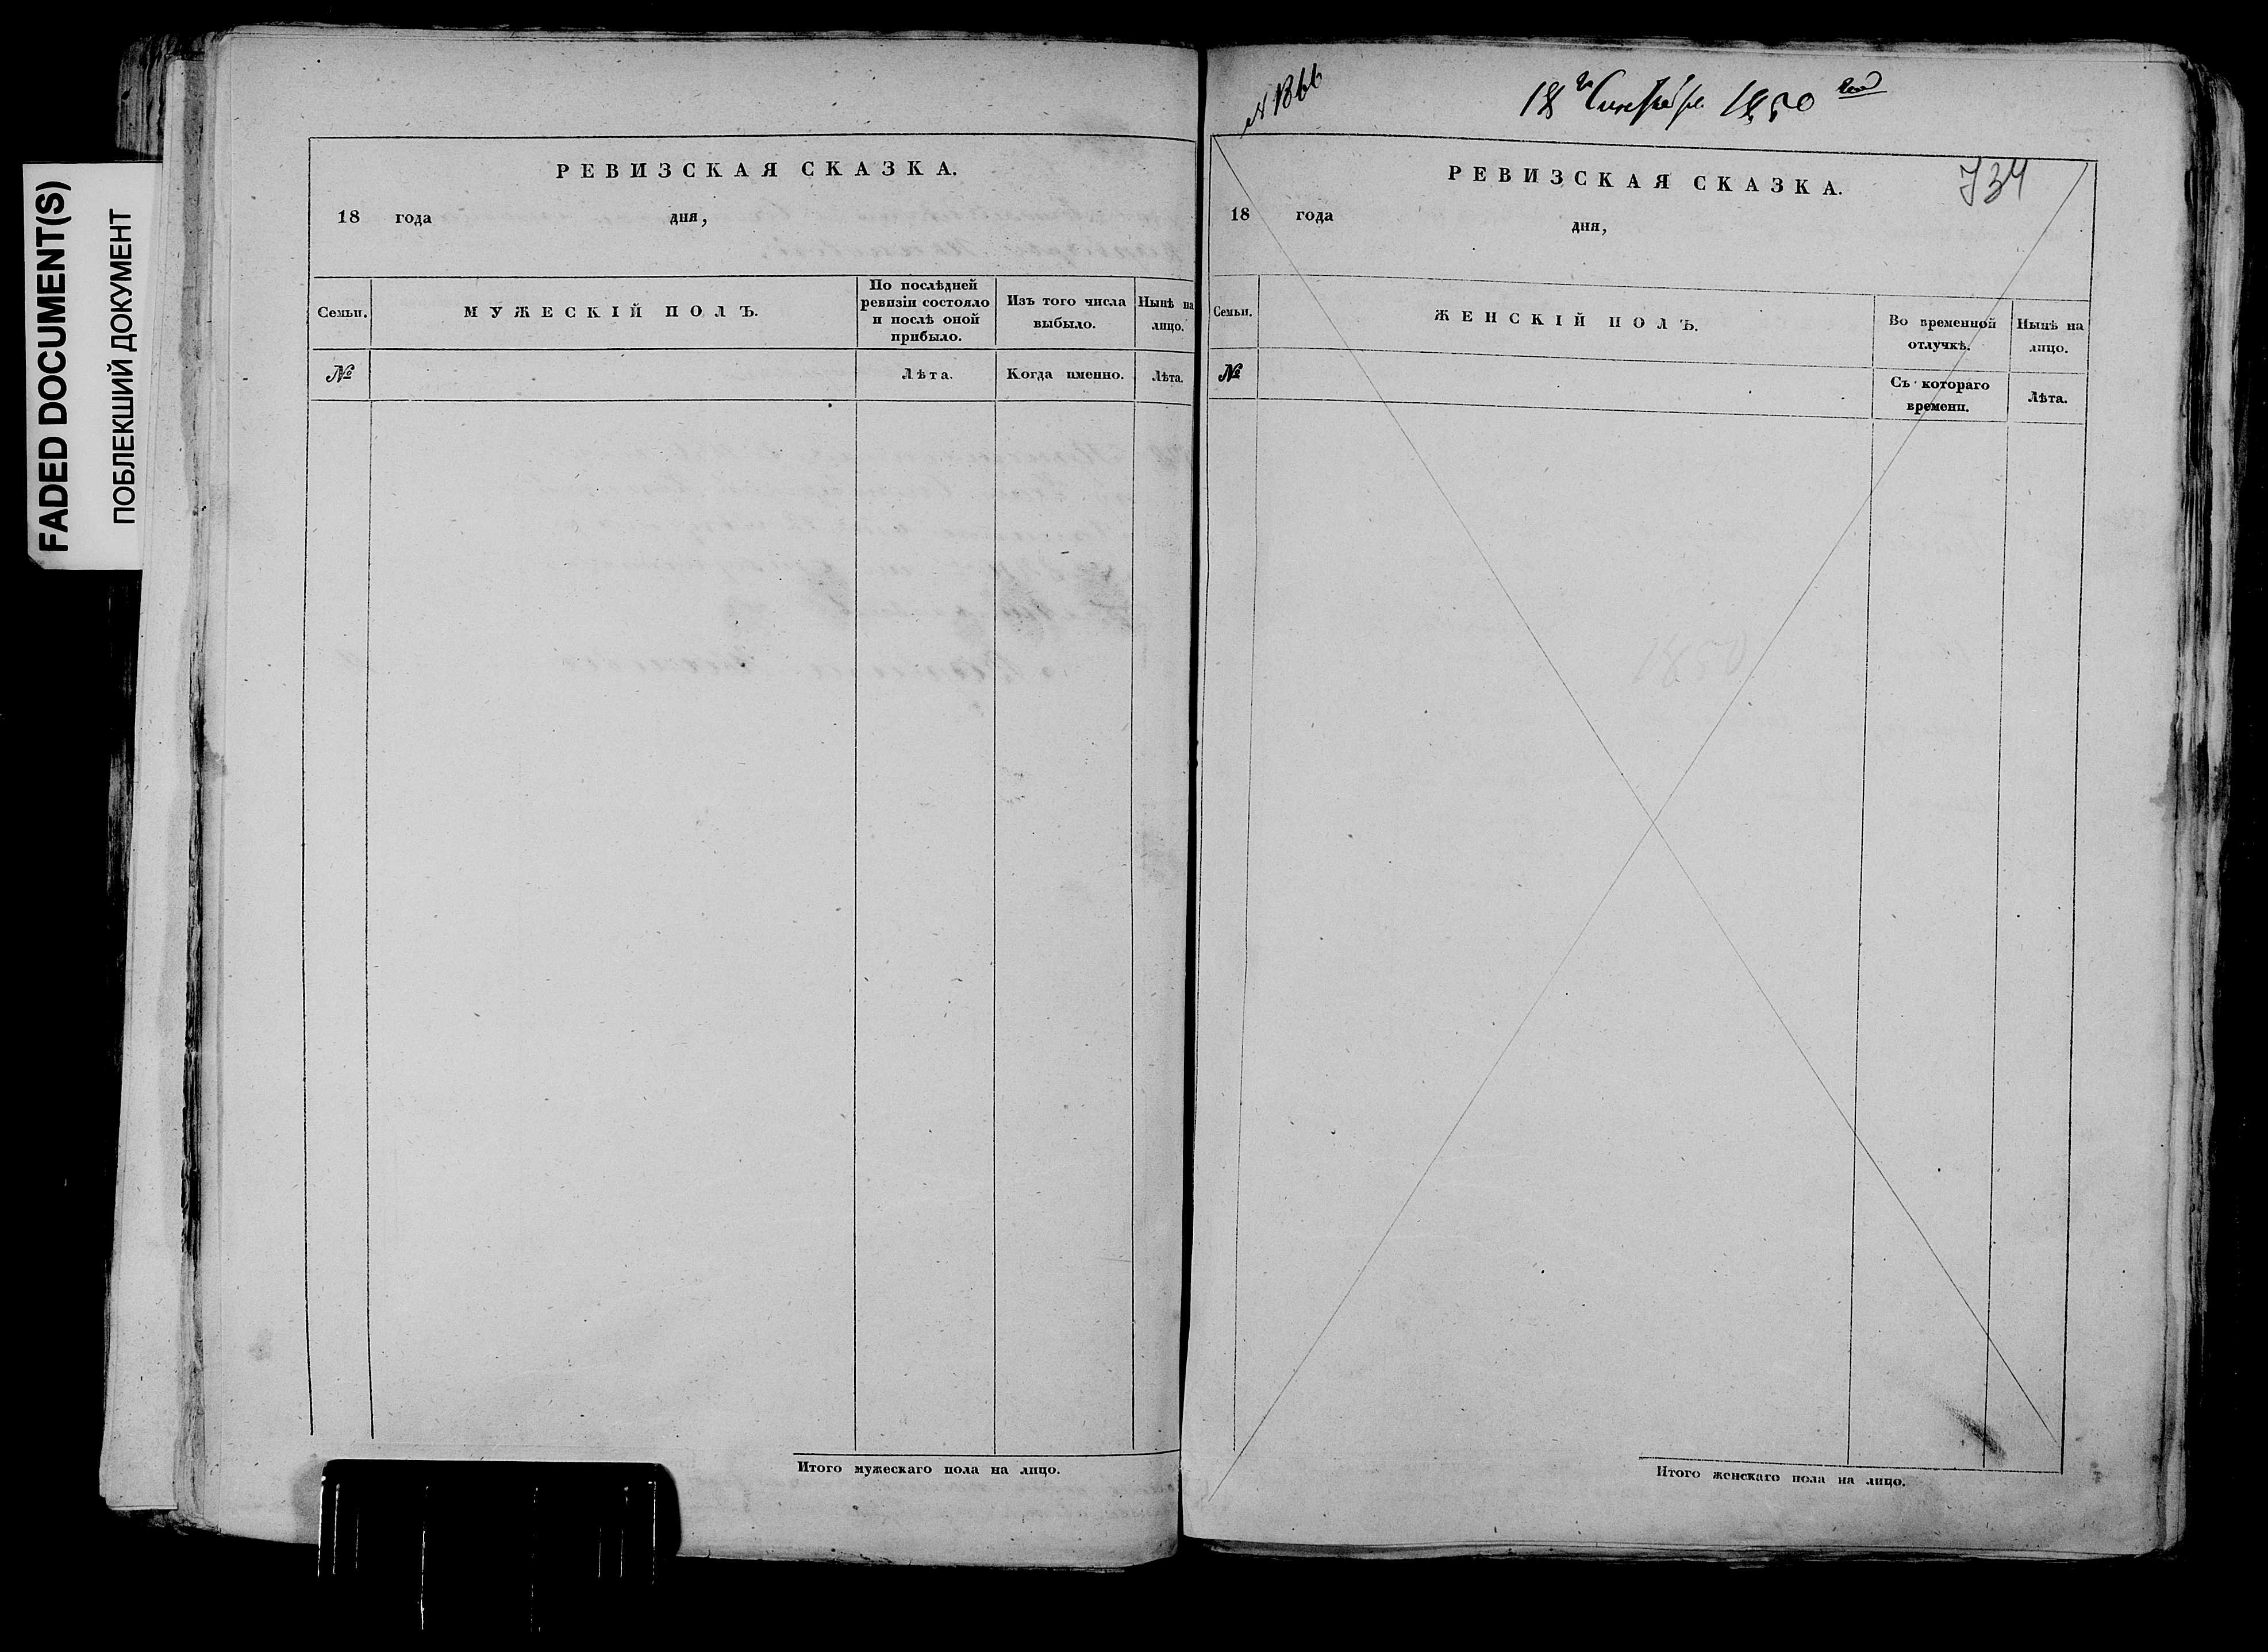 FADED DOCUMENT(S)
ПОБЛЕКШИЙ ДОКУМЕНТ
РЕВИЗСКАЯ СКАЗКА.
18 года дня,
Семьи.
МУЖЕСКІЙ ПОЛЪ.
По послѣдней
ревизіи состояло
и послѣ оной
прибыло.
Изъ того числа
выбыло.
Нынѣ на
лицо.
№
Лѣта.
Когда именно.
Лѣта.
Итого мужескаго пола на лицо.
18 Сентября 1850
734
РЕВИЗСКАЯ СКАЗКА.
18 года дня,
Семьи.
ЖЕНСКІЙ ПОЛЪ.
Во временной
отлучкѣ.
Нынѣ на
лицо.
№
Съ котораго
времени.
Лѣта.
Итого женскаго пола на лицо.